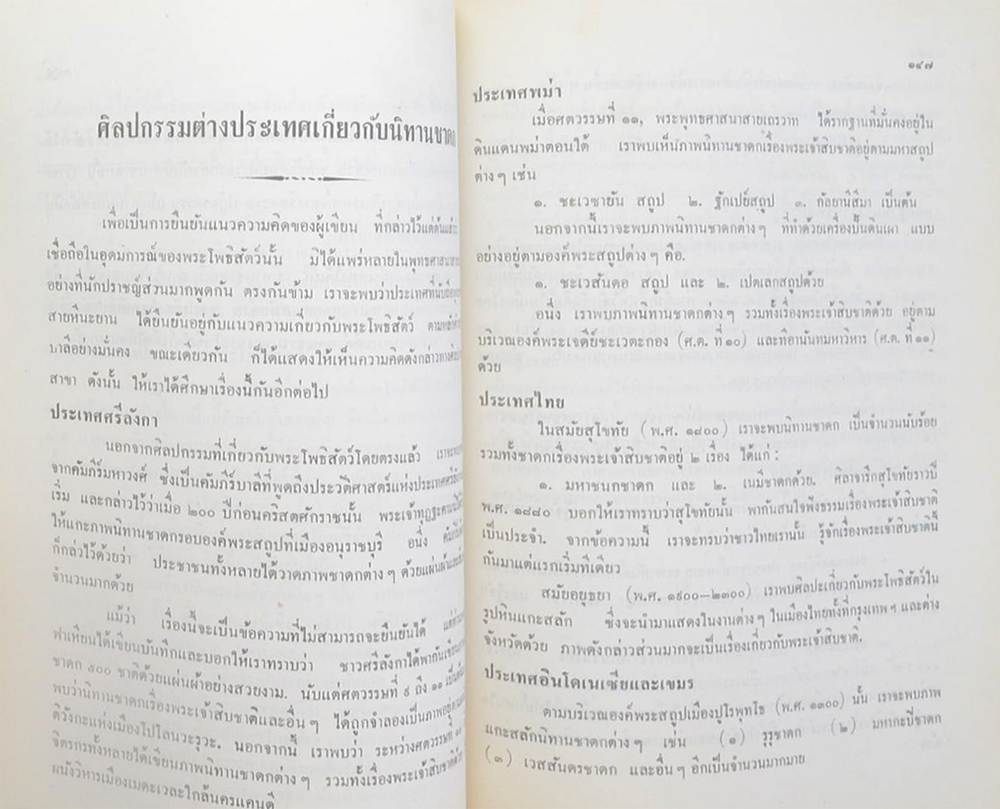 ศิลปกรรมต่างประเทศเกี่ยวกับนิทานชาดก
เพื่อเป็นการยืนยันแนวความคิดของผู้เขียน ที่กล่าวไว้แต่ต้นแล้วว่า
เชื่อถือในอุดมการณ์ของพระโพธิสัตว์นั้น มิได้แพร่หลายในพุทธศาสนา
อย่างที่นักปราชญ์ส่วนมากพูดกัน ตรงกันข้าม เราจะพบว่าประเทศที่นับถือพุทธ
สายหีนะยาน ได้ยืนยันอยู่กับแนวความเกี่ยวกับพระโพธิสัตว์
บาลีอย่างมั่นคง ขณะเดียวกัน ก็ได้แสดงให้เห็นความคิดดังกล่าว
สาขา ดังนั้น ให้เราได้ศึกษาเรื่องนี้กันอีกต่อไป
ประเทศศรีลังกา
นอกจากศิลปกรรมที่เกี่ยวกับพระโพธิสัตว์โดยตรงแล้ว
จากคัมภีร์มหาวงศ์ ซึ่งเป็นคัมภีร์บาลีที่พูดถึงประวัติศาสตร์แห่งประเทศศรีลังกา
เริ่ม และกล่าวไว้ว่าเมื่อ ๒๐๐ ปีก่อนคริสตศักราชนั้น
ให้แกะภาพนิทานชาดกรอบองค์พระสถูปที่เมืองอนุราชบุรี อนึ่ง
ก็กล่าวไว้ด้วยว่า ประชาชนทั้งหลายได้วาดภาพชาดกต่างๆ ด้วยแผ่นผ้า
จำนวนมากด้วย
แม้ว่า เรื่องนี้จะเป็นข้อความที่ไม่สามารถจะยืนยันได้
ฟาเหียนได้เขียนบันทึกและบอกให้เราทราบว่า ชาวศรีลังกาได้พากันเขียน
ชาดก ๕๐๐ ชาติด้วยแผ่นผ้าอย่างสวยงาม. นับแต่ศตวรรษที่ ๙ ถึง ๑๑
พบว่านิทานชาดกเรื่องพระเจ้าสิบชาติและอื่นๆ ได้ถูกจำลองเป็นภาพอยู่
ติวังกะแห่งเมืองโปโลนวะรุวะ. นอกจากนี้ เราพบว่า ระหว่างศตวรรษที่
จิตรกรทั้งหลายได้เขียนภาพนิทานชาดกต่างๆ รวมทั้งเรื่องพระเจ้าสิบชาติด้วย
ผนังวิหารเมืองเมดะเวละใกล้นครแคนดี
๑๔๗
ประเทศพม่า
เมื่อศตวรรษที่ ๑๑, พระพุทธศาสนาสายเถรวาท ได้รากฐานที่มั่นคงอยู่ใน
ดินแดนพม่าตอนใต้ เราพบเห็นภาพนิทานชาดกเรื่องพระเจ้าสิบชาติอยู่ตามมหาสถูป
ต่างๆ เช่น
๑. ชะเวซายัน สถูป ๒. ฐักเปย์สถูป ๓. กัลยานิสิมา เป็นต้น
นอกจากนี้เราจะพบภาพนิทานชาดกต่างๆ ที่ทำด้วยเครื่องปั้นดินเผา แบบ
อย่างอยู่ตามองค์พระสถูปต่างๆ คือ.
๑. ชะเวสันดอ สถูป และ ๒. เปตเลกสถูปด้วย
อนึ่ง เราพบภาพนิทานชาดกต่างๆ รวมทั้งเรื่องพระเจ้าสิบชาติด้วย อยู่ตาม
บริเวณองค์พระเจดีย์ชะเวดะกอง (ศ.ต. ที่ ๑๐) และที่อานันทมหาวิหาร (ศ.ต. ที่ ๑๑)
ด้วย
ประเทศไทย
ในสมัยสุโขทัย (พ.ศ. ๑๘๐๐) เราจะพบนิทานชาดก เป็นจำนวนนับร้อย
รวมทั้งชาดกเรื่องพระเจ้าสิบชาติอยู่ ๒ เรื่อง ได้แก่ :
๑. มหาชนกชาดก และ ๒. เนมิชาดกด้วย. ศิลาจารึกสุโขทัยราวปี
พ.ศ. ๑๘๘๐ บอกให้เราทราบว่าสุโขทัยนั้น พากันสนใจฟังธรรมเรื่องพระเจ้าสิบชาติ
เป็นประจำ. จากข้อความนี้ เราจะทราบว่าชาวไทยเรานั้น รู้จักเรื่องพระเจ้าสิบชาตินี้
กันมาแต่แรกเริ่มทีเดียว
สมัยอยุธยา (พ.ศ. ๑๙๐๐—๒๓๐๐) เราพบศิลปะเกี่ยวกับพระโพธิสัตว์ใน
รูปหินแกะสลัก ซึ่งจะนำมาแสดงในงานต่างๆ ในเมืองไทยทั้งที่กรุงเทพฯ และต่าง
จังหวัดด้วย ภาพดังกล่าวส่วนมากจะเป็นเรื่องเกี่ยวกับพระเจ้าสิบชาติ.
ประเทศอินโดเนเซียและเขมร
ตามบริเวณองค์พระสถูปเมืองปูโรพุทโธ (พ.ศ. ๑๓๐๐) นั้น เราจะพบภาพ
แกะสลักนิทานชาดกต่างๆ เช่น (๑) รุรุชาดก (๒) มหากะปีชาดก
(๓) เวสสันดรชาดก และอื่นๆ อีกเป็นจำนวนมากมาย